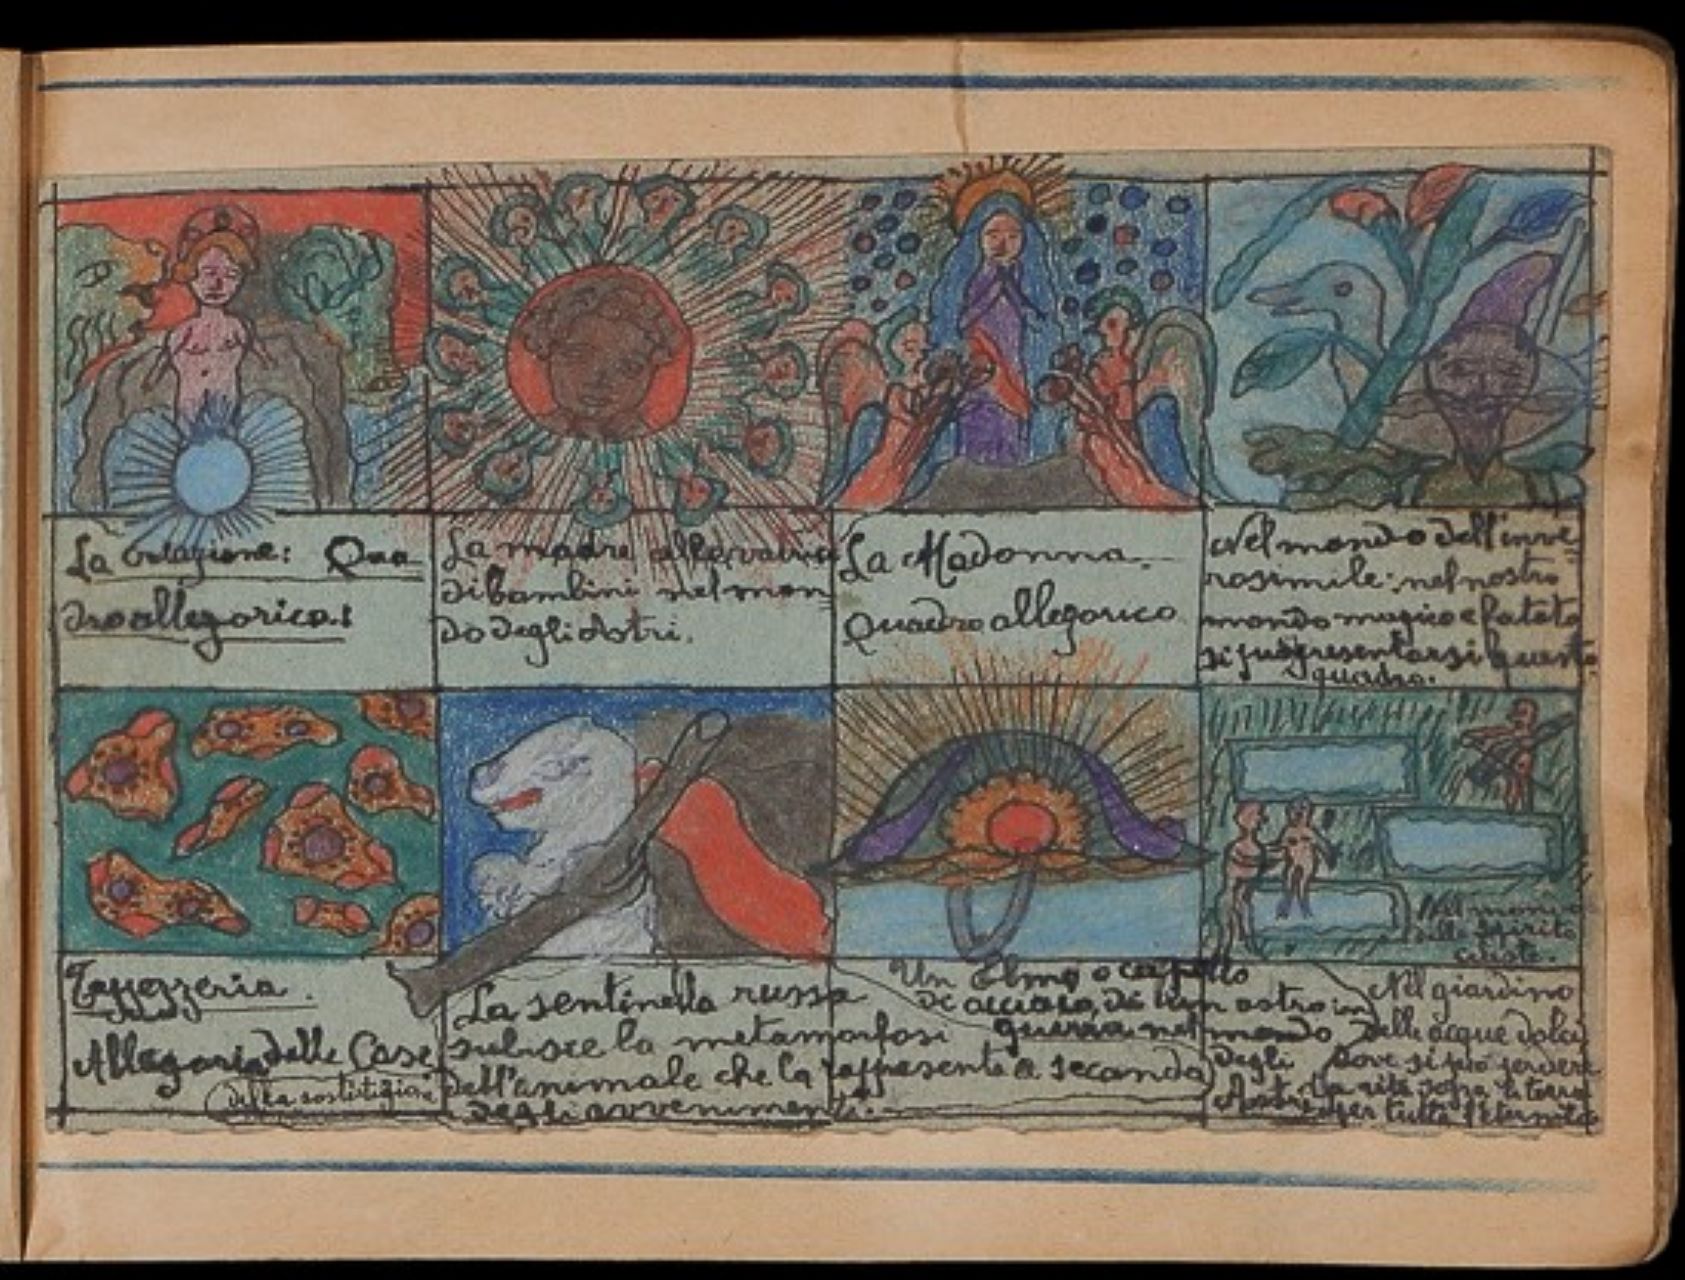 La creazione: Qua
dro allegorico:
La madre allevatrice
di bambini nel mon
do degli Astri.
La Madonna.
Quadro allegorico
Nel mondo dell'inve
rosimile: nel nostro
mondo magico e fatato
si può presentarsi questo
quadro.
Tappezzeria.
Allegoria delle Case
della
La sentinella russa
subisce la metamorfosi
dell'animale che la rappresenta a seconda
degli avvenimenti.
Un Elmo o cappello
di acciaio, di un astro in
guerra nel mondo
degli
Astri
Nel mondo
dello spirito
celeste.
Nel giardino
delle acque dolci
dove si può perdere
la vita sopra la terra
per tutta l'eternità